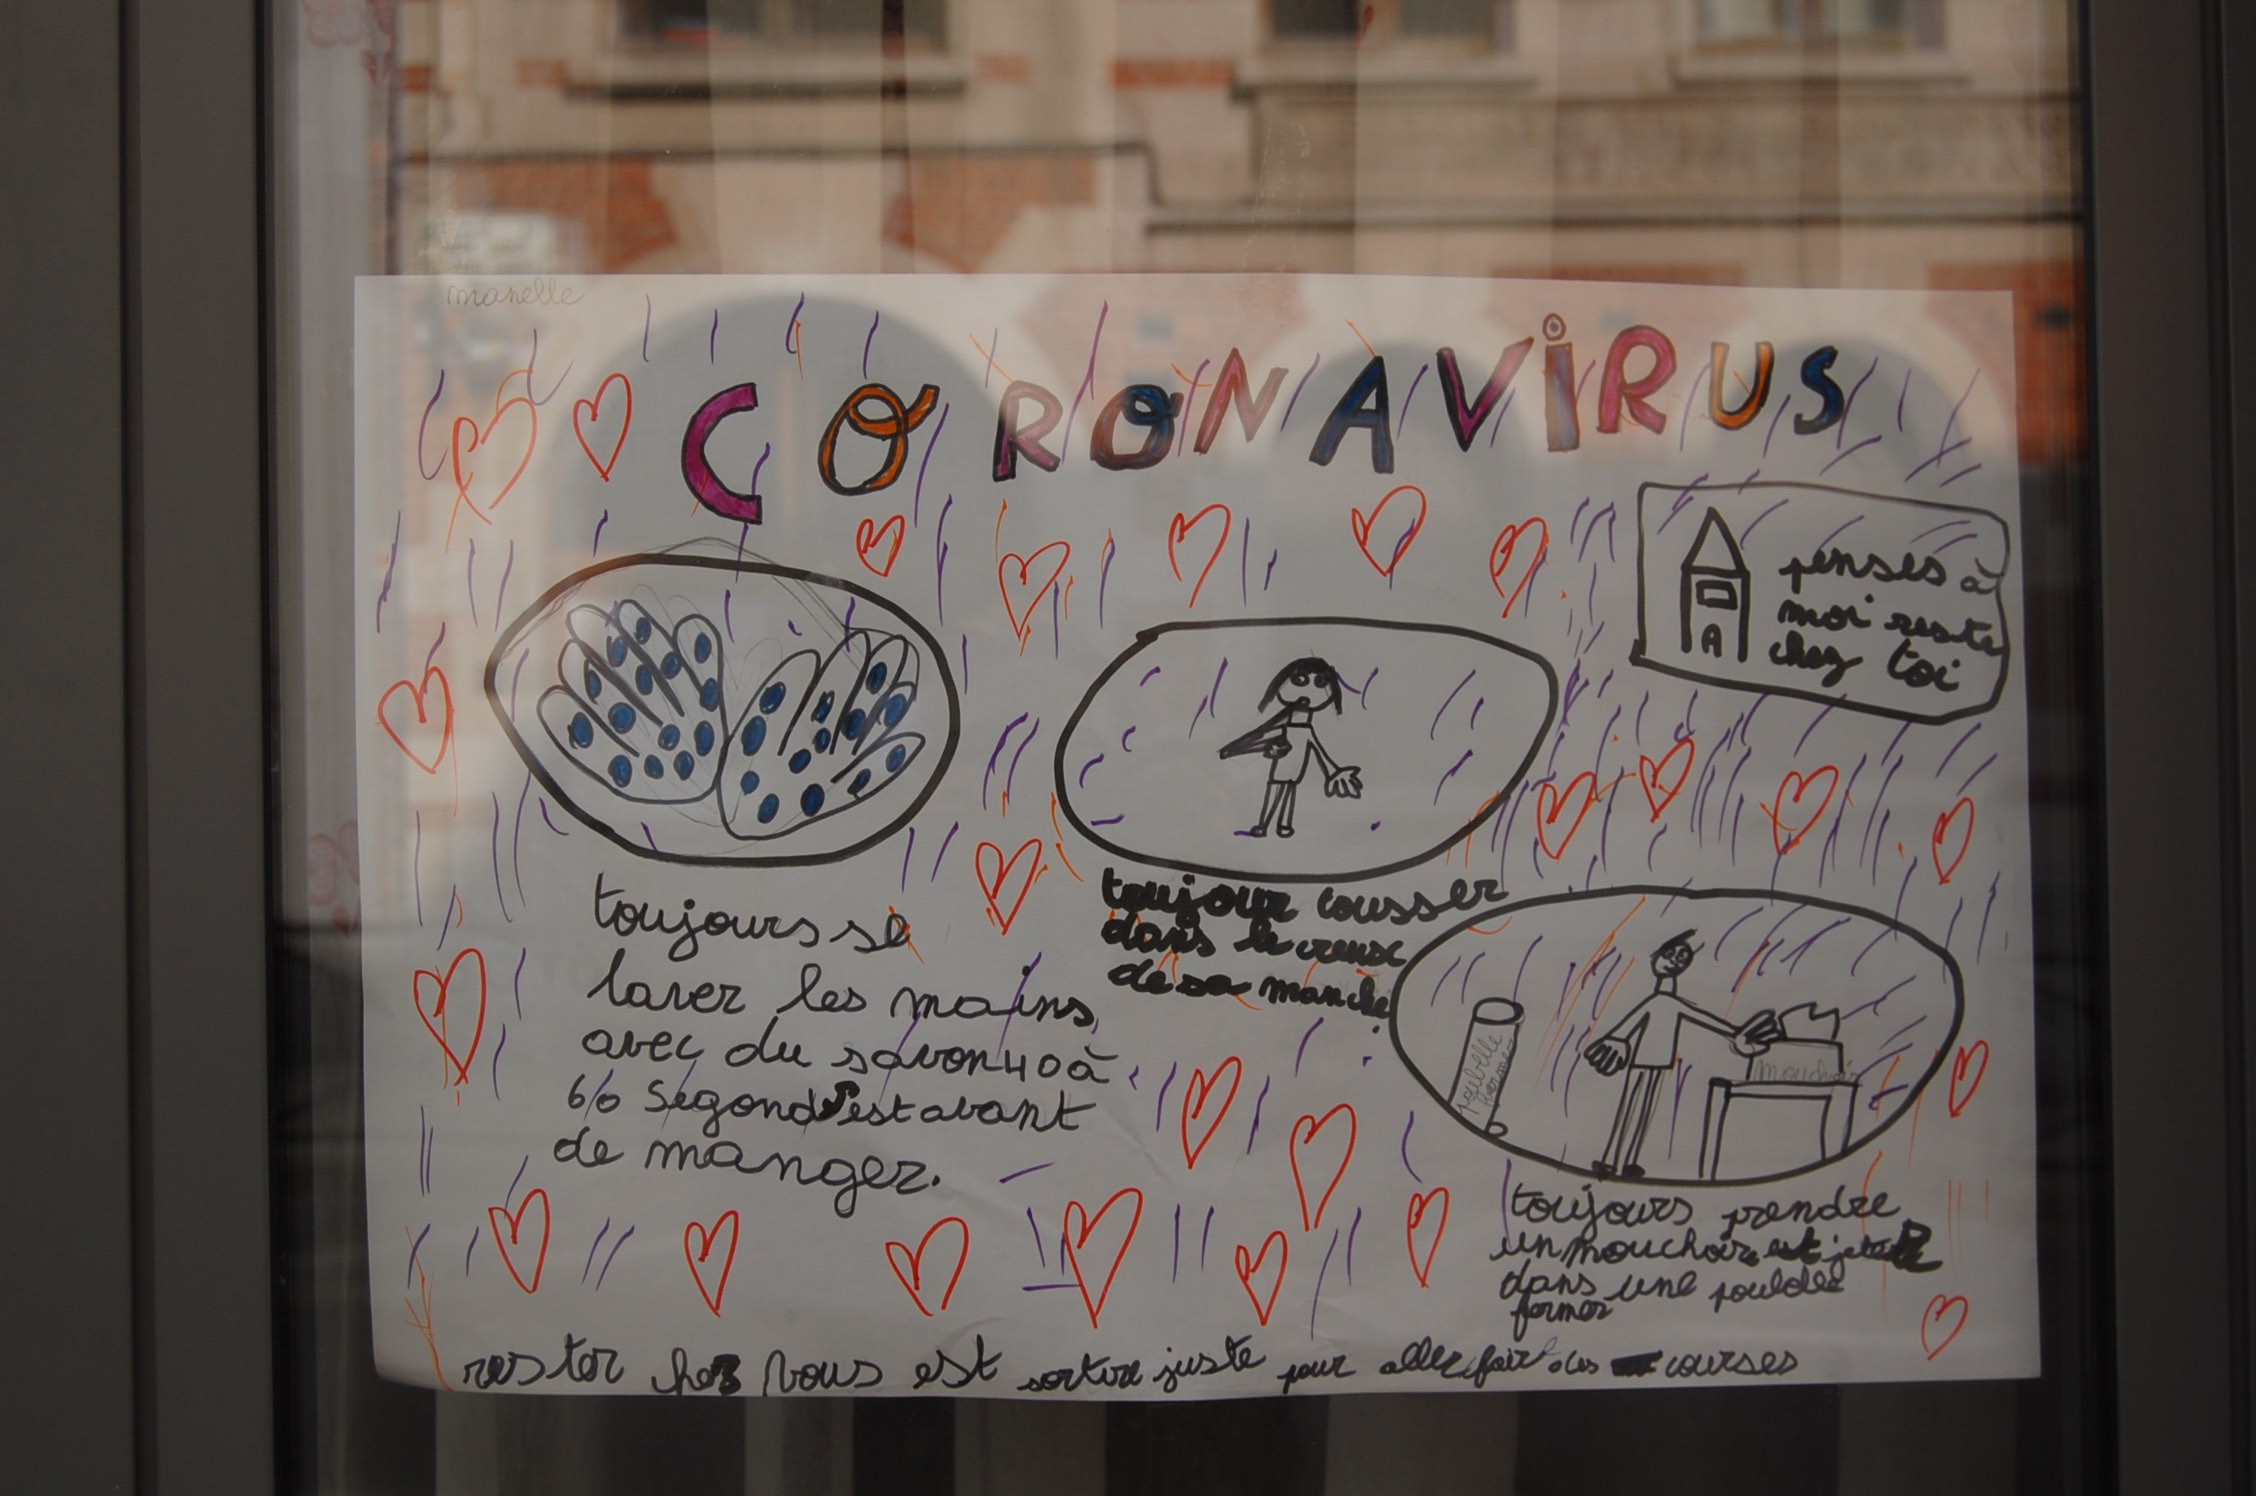 manelle
CORONAVIRUS
penses à
moi reste
chez toi
A
toujours se
laver les mains
avec du savon 40 à
60 segonds est avant
de manger.
toujour tousser
dans le creux
de sa manche
poubelle
fermer
mouchoir
toujours prendre
un mouchoir est jeter
dans une
former
rester chez vous est sortire juste pour aller fair des courses